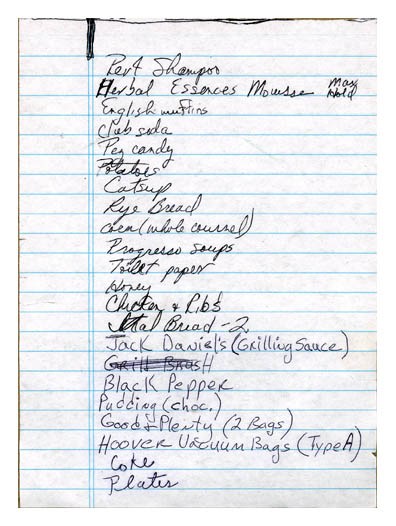 Pert Shampoo
Herbal Essences Mousse Max Hold
English muffins
club soda
Pez candy
Potatoes
Catsup
Rye Bread
corn (whole cournel)
Progresso soups
Toilet paper
Honey
Chicken & Ribs
Ital Bread - 2
Jack Daniel's (Grilling Sauce)
Grill Brush
Black Pepper
Pudding (choc.)
Good & Plenty (2 Bags)
Hoover Vacuum Bags (Type A)
Coke
Plates